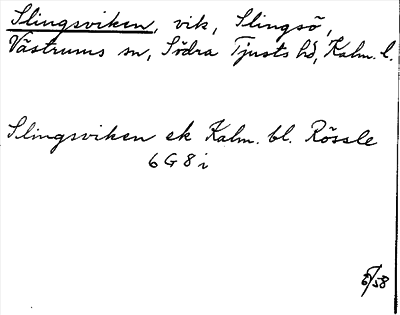 Slingsviken, vik, Slingsö,
Västrums sn, Södra Tjusts hd, Kalm. l.
Slingsviken ek Kalm. bl. Rössle
6 G 8 i